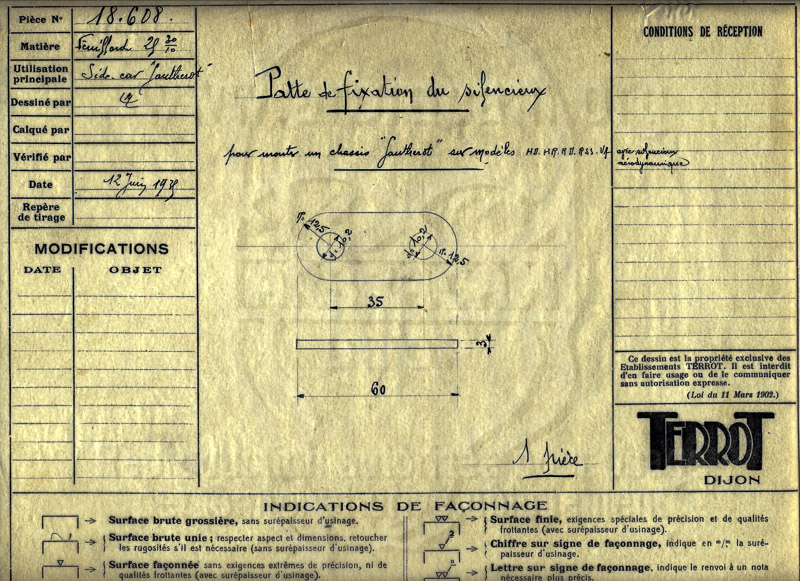 Pièce Nº 18.608.
Matière Feuillard 25 30/10
Utilisation principale Side-car "Gautherot"
Dessiné par
Calqué par
Vérifié par
Date 12 Juin 1935
Repère de tirage
MODIFICATIONS
DATE OBJET
Patte de fixation du silencieux
pour monter un chassis "Gautherot" sur modèles
après silencieux
aérodynamique
r. 12,5
d. 10,2
d. 10,2
r. 12,5
35
3
60
1 pièce
CONDITIONS DE RÉCEPTION
Ce dessin est la propriété exclusive des
Etablissements TERROT. Il est interdit
d'en faire usage ou de le communiquer
sans autorisation expresse.
(Loi du 11 Mars 1902.)
TERROT
DIJON
INDICATIONS DE FAÇONNAGE
Surface brute grossière, sans surépaisseur d'usinage.
Surface brute unie; respecter aspect et dimensions, retoucher
les rugosités s'il est nécessaire (sans surépaisseur d'usinage).
Surface façonnée sans exigences extrêmes de précision, ni de
qualités frottantes (avec surépaisseur d'usinage).
Surface finie, exigences spéciales de précision et de qualités
frottantes (avec surépaisseur d'usinage).
Chiffre sur signe de façonnage, indique en m/m la suré-
paisseur d'usinage.
Lettre sur signe de façonnage, indique le renvoi à un nota
nécessaire plus précis.